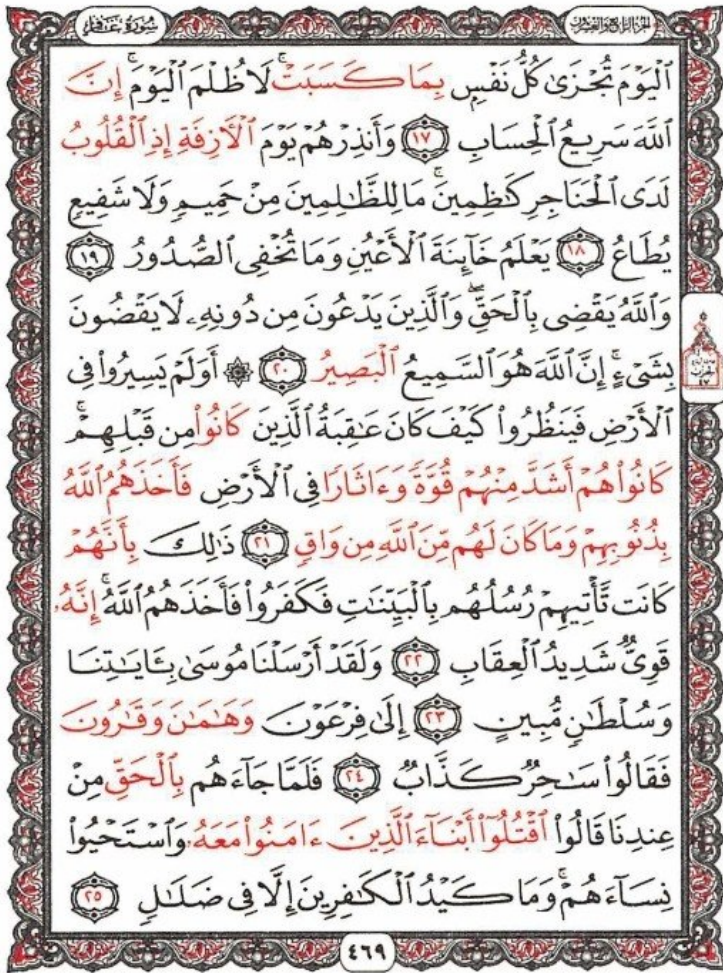 سُورَةُ غَافِرٍ
الجُزءُ الرَّابِعُ وَالعِشْرُونَ
ٱلْيَوْمَ تُجْزَىٰ كُلُّ نَفْسٍۭ بِمَا كَسَبَتْۚ لَا ظُلْمَ ٱلْيَوْمَۚ إِنَّ
ٱللَّهَ سَرِيعُ ٱلْحِسَابِ ١٧ وَأَنذِرْهُمْ يَوْمَ ٱلْأَزِفَةِ إِذِ ٱلْقُلُوبُ
لَدَى ٱلْحَنَاجِرِ كَٰظِمِينَۚ مَا لِلظَّٰلِمِينَ مِنْ حَمِيمٍ وَلَا شَفِيعٍ
يُطَاعُ ١٨ يَعْلَمُ خَآئِنَةَ ٱلْأَعْيُنِ وَمَا تُخْفِى ٱلصُّدُورُ ١٩
وَٱللَّهُ يَقْضِى بِٱلْحَقِّۖ وَٱلَّذِينَ يَدْعُونَ مِن دُونِهِۦ لَا يَقْضُونَ
بِشَىْءٍۗ إِنَّ ٱللَّهَ هُوَ ٱلسَّمِيعُ ٱلْبَصِيرُ ٢٠ ۞ أَوَلَمْ يَسِيرُوا۟ فِى
ٱلْأَرْضِ فَيَنظُرُوا۟ كَيْفَ كَانَ عَٰقِبَةُ ٱلَّذِينَ كَانُوا۟ مِن قَبْلِهِمْۚ
كَانُوا۟ هُمْ أَشَدَّ مِنْهُمْ قُوَّةً وَءَاثَارًا فِى ٱلْأَرْضِ فَأَخَذَهُمُ ٱللَّهُ
بِذُنُوبِهِمْ وَمَا كَانَ لَهُم مِّنَ ٱللَّهِ مِن وَاقٍ ٢١ ذَٰلِكَ بِأَنَّهُمْ
كَانَت تَّأْتِيهِمْ رُسُلُهُم بِٱلْبَيِّنَٰتِ فَكَفَرُوا۟ فَأَخَذَهُمُ ٱللَّهُۚ إِنَّهُۥ
قَوِىٌّ شَدِيدُ ٱلْعِقَابِ ٢٢ وَلَقَدْ أَرْسَلْنَا مُوسَىٰ بِـَٔايَٰتِنَا
وَسُلْطَٰنٍ مُّبِينٍ ٢٣ إِلَىٰ فِرْعَوْنَ وَهَٰمَٰنَ وَقَٰرُونَ
فَقَالُوا۟ سَٰحِرٌ كَذَّابٌ ٢٤ فَلَمَّا جَآءَهُم بِٱلْحَقِّ مِنْ
عِندِنَا قَالُوا۟ ٱقْتُلُوٓا۟ أَبْنَآءَ ٱلَّذِينَ ءَامَنُوا۟ مَعَهُۥ وَٱسْتَحْيُوا۟
نِسَآءَهُمْۚ وَمَا كَيْدُ ٱلْكَٰفِرِينَ إِلَّا فِى ضَلَٰلٍ ٢٥
٤٦٩